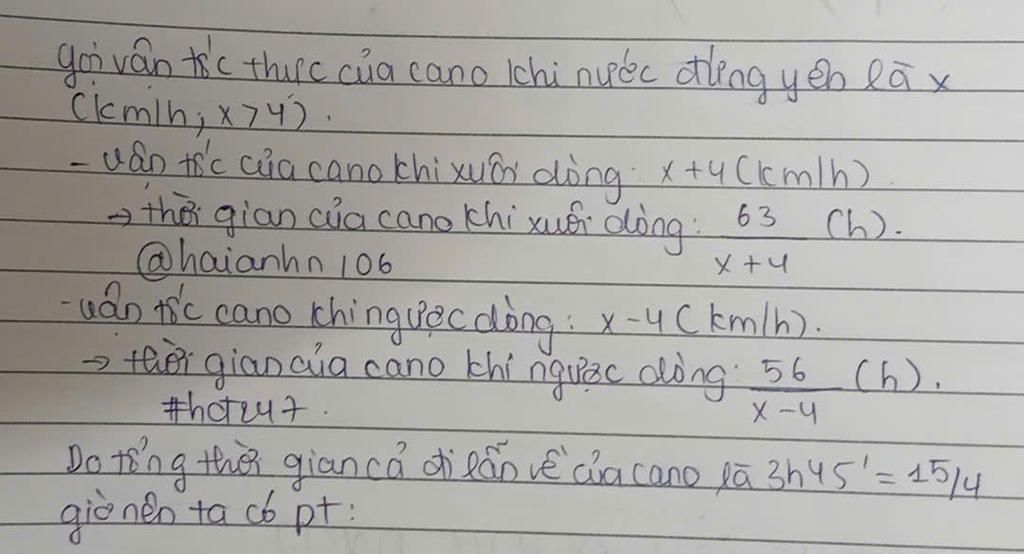 gọi vận tốc thực của cano khi nước đứng yên là x
(km/h; x>4).
- vận tốc của cano khi xuôi dòng: x+4 (km/h)
→ thời gian của cano khi xuôi dòng: 63/(x+4) (h).
@haianhn106
- vận tốc cano khi ngược dòng: x-4 (km/h).
→ thời gian của cano khi ngược dòng: 56/(x-4) (h).
#hot247.
Do tổng thời gian cả đi lẫn về của cano là 3h45' = 15/4
giờ nên ta có pt: